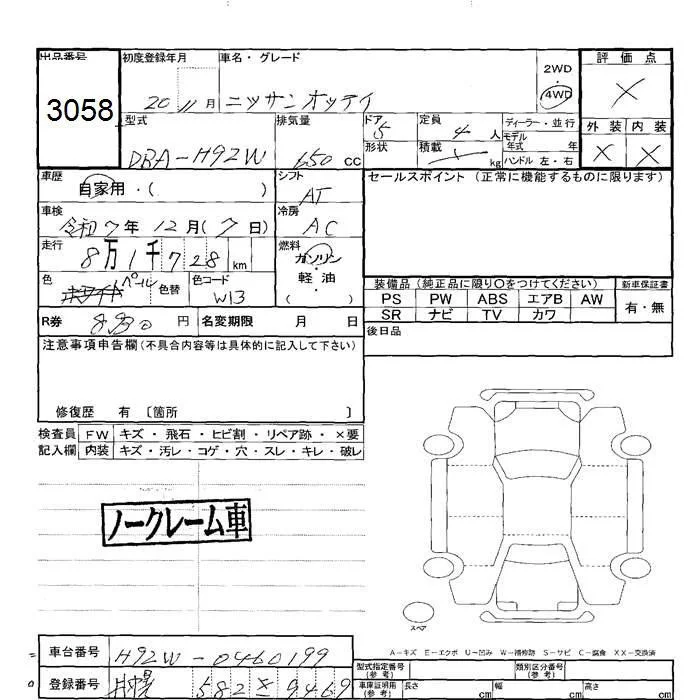 出品番号
3058
初度登録年月
20 11月
車名・グレード
ニッサンオッティ
2WD
・
4WD
評価点
×
型式
DBA-H92W
排気量
650 cc
ドア
5
形状
定員
4 人
積載
kg
ディーラー・並行
モデル年式 年
ハンドル 左・右
外装 内装
× ×
車歴
自家用・( )
シフト
AT
セールスポイント (正常に機能するものに限ります)
車検
令和7年12月(7日)
冷房
AC
走行
8万1千728km
燃料
ガソリン
・
軽油
( )
色
パール
色替
色コード
W13
装備品(純正品に限り○をつけてください)
新車保証書
PS PW ABS エアB AW
有・無
SR ナビ TV カワ
R券 8,830 円
名変期限 月 日
後日品
注意事項申告欄(不具合内容等は具体的に記入して下さい)
修復歴 有 〔箇所 〕
検査員 FW キズ・飛石・ヒビ割・リペア跡・×要
記入欄 内装 キズ・汚レ・コゲ・穴・スレ・キレ・破レ
ノークレーム車
スペア
A-キズ E-エクボ U-凹み W-補修跡 S-サビ C-腐食 XX-交換済
車台番号 H92W-0460199
登録番号 582 を 9469
型式指定番号(参考)
類別区分番号(参考)
車庫証明用(参考) 長さ cm 幅 cm 高さ cm